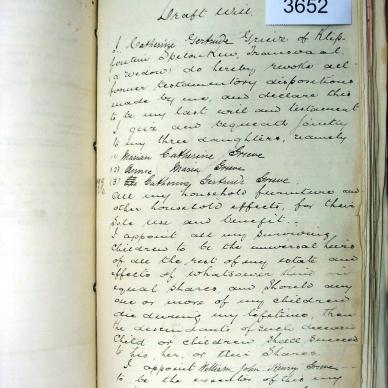 3652
Draft Will
I Catherine Gertrude Greeve of Klip-
fontein Spelonken Transvaal
(a widow) do hereby revoke all
former testamentary dispositions
made by me, and declare this
to be my last will and testament
I give and bequeath jointly
to my three daughters, namely
(1) Marian Catherine Greeve
(2) Annie Maria Greeve
(3) Catherine Gertrude Greeve
all my household furniture and
other household effects, for their
sole use and benefit.
I appoint all my surviving
children to be the universal heirs
of all the rest of my estate and
effects of whatsoever kind in
equal shares, and should any
one or more of my children
die during my lifetime, then
the descendants of such deceased
child or children shall succeed
to his, her, or their shares
I appoint William John Henry Greeve
to be the executor of this my